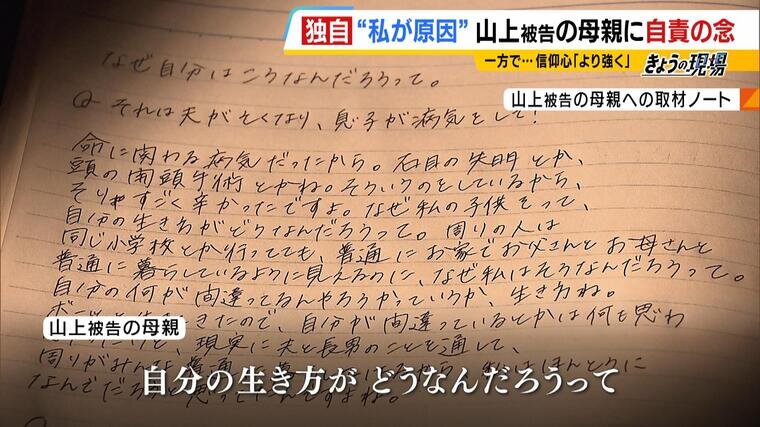 独自 “私が原因” 山上被告の母親に自責の念
一方で…信仰心「より強く」
きょうの現場
山上被告の母親への取材ノート
なぜ自分はこうなんだろうって。
Q それは夫が亡くなり、息子が病気をして!
命に関わる病気だったから。右目の失明とか、
頭の開頭手術とかね。そういうのをしているから、
そりゃすごく辛かったですよ。なぜ私の子供そって、
自分の生き方がどうなんだろうって。周りの人は
同じ小学校とか行ってても、普通にお家でお父さんとお母さんと
普通に暮らしているように見えるのに、なぜ私はそうなんだろうって。
自分の何が間違ってるんやろうかっていうか、生き方ね。
生きてきたので、自分が間違っているとかは何も思わ
現実に夫と長男のことを通して、
周りがみんな
私はほんとうに
なんでだろう
山上被告の母親
自分の生き方が どうなんだろうって